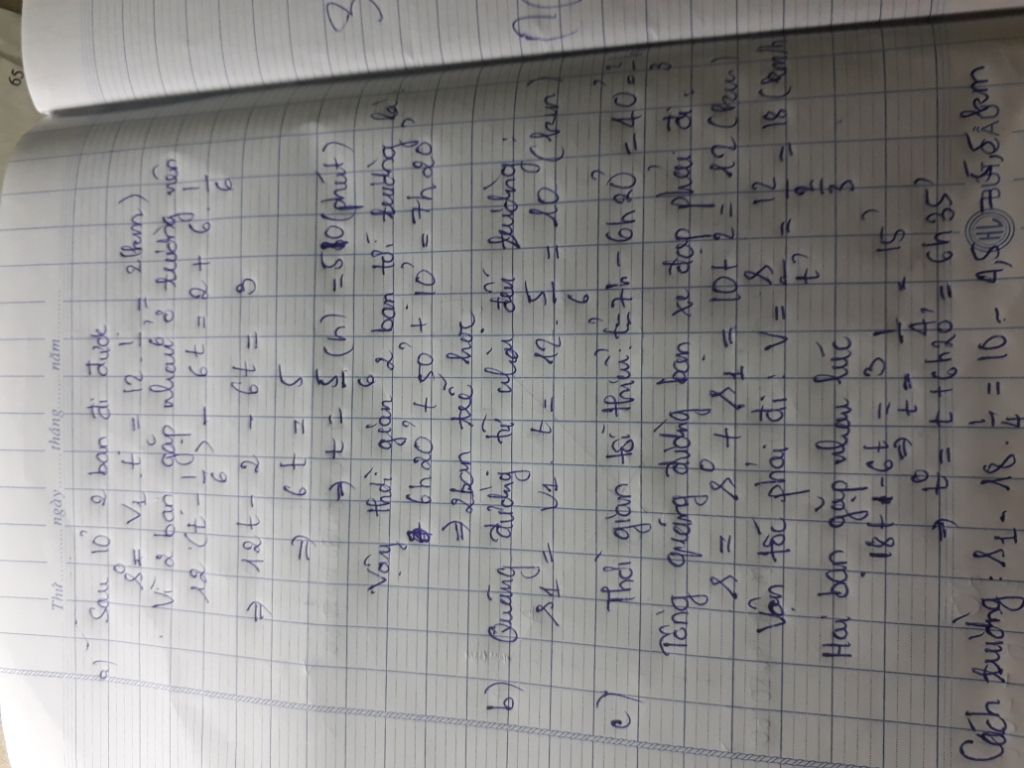 Thứ ........ ngày ........ tháng ........ năm ........
a) Sau 10' 2 bạn đi được
S⁰ = V1 . t' = 12 . 1/6 = 2 (km)
Vì 2 bạn gặp nhau ở trường nên
12 (t - 1/6) - 6t = 2 + 6 . 1/6
⇒ 12t - 2 - 6t = 3
⇒ 6t = 5
⇒ t = 5/6 (h) = 50 (phút)
Vậy thời gian 2 bạn tới trường là
6h20' + 50' + 10' = 7h20'
⇒ 2 bạn trễ học
b) Quãng đường từ nhà đến trường:
S1 = V1 . t = 12 . 5/6 = 10 (km)
c) Thời gian tới trường: t' = 7h - 6h20' = 40' = 2/3
Tổng quãng đường bạn xe đạp phải đi:
S = S⁰ + S1 = 10 + 2 = 12 (km)
Vận tốc phải đi: V = S/t' = 12/(2/3) = 18 (km/h
Hai bạn gặp nhau lúc
18t - 6t = 3
⇒ t = 1/4 = 15'
⇒ t⁰ = t + 6h20' = 6h35'
Cách trường: S1 - 18 . 1/4 = 10 - 4,5 = 5,5 km